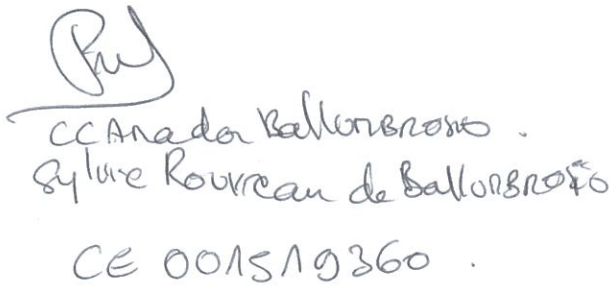 CC Amador Ballumbrosio.
Sylvie Rouvreau de Ballumbrosio
CE 001519360.